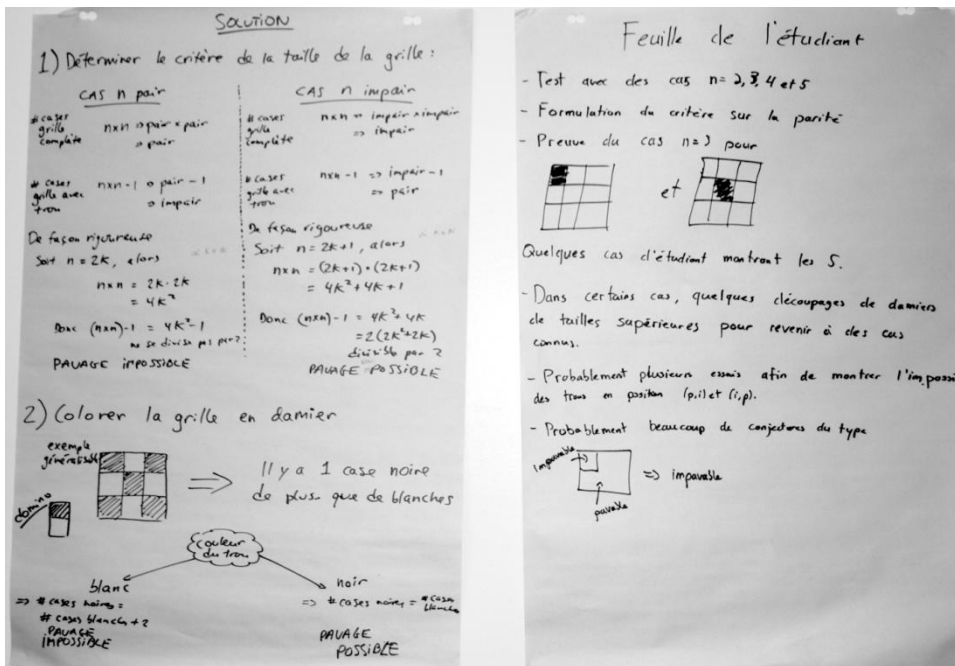 SOLUTION
1) Déterminer le critère de la taille de la grille :
CAS n pair
# cases
grille
complète
n×n ⇒ pair × pair
⇒ pair
# cases
grille avec
trou
n×n - 1 ⇒ pair - 1
⇒ impair
De façon rigoureuse
Soit n = 2k, alors
n×n = 2k · 2k
= 4k²
Donc (n×n) - 1 = 4k² - 1
ne se divise pas par 2
PAVAGE IMPOSSIBLE
CAS n impair
# cases
grille
complète
n×n ⇒ impair × impair
⇒ impair
# cases
grille avec
trou
n×n - 1 ⇒ impair - 1
⇒ pair
De façon rigoureuse
Soit n = 2k+1, alors
n×n = (2k+1) · (2k+1)
= 4k² + 4k + 1
Donc (n×n) - 1 = 4k² + 4k
= 2(2k²+2k)
divisible par 2
PAVAGE POSSIBLE
2) Colorer la grille en damier
exemple
généralisable
domino
⇒ Il y a 1 case noire
de plus que de blanches
couleur
du trou
blanc
⇒ # cases noires =
# cases blanches + 2
PAVAGE
IMPOSSIBLE
noir
⇒ # cases noires = # cases
blanches
PAVAGE
POSSIBLE
Feuille de l'étudiant
- Test avec des cas n = 2, 3, 4 et 5
- Formulation du critère sur la parité
- Preuve du cas n = 3 pour
et
Quelques cas d'étudiant montrant les 5.
- Dans certains cas, quelques découpages de damiers
de tailles supérieures pour revenir à des cas
connus.
- Probablement plusieurs essais afin de montrer l'impossi
des trous en position (p,i) et (i,p).
- Probablement beaucoup de conjectures du type
impavable
⇒ impavable
pavable